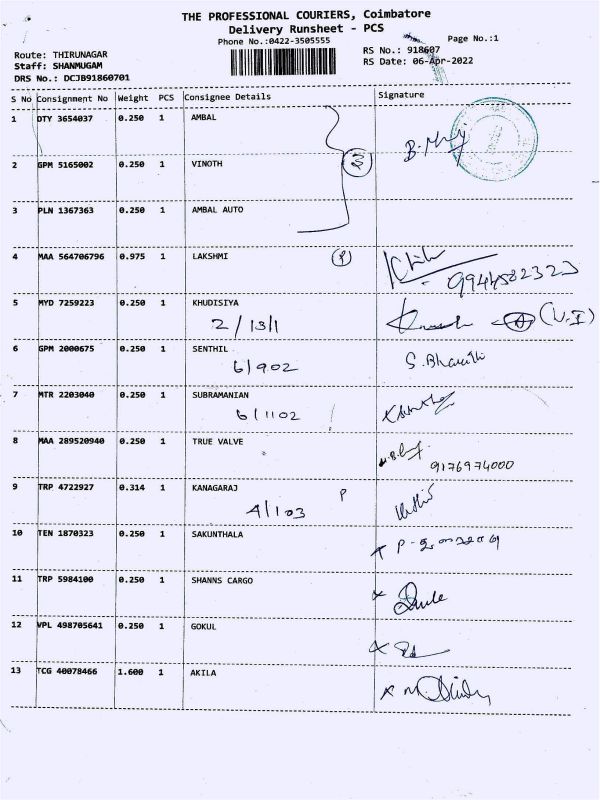 THE PROFESSIONAL COURIERS, Coimbatore
Delivery Runsheet - PCS
Phone No.:0422-3505555
Page No.:1
Route: THIRUNAGAR
RS No.: 918607
Staff: SHANMUGAM
RS Date: 06-Apr-2022
DRS No.: DCJB91860701
S No Consignment No Weight PCS Consignee Details Signature
1 DTY 3654037 0.250 1 AMBAL
2 GPM 5165002 0.250 1 VINOTH
3
3 PLN 1367363 0.250 1 AMBAL AUTO
4 MAA 564706796 0.975 1 LAKSHMI
9944582323
5 MYD 7259223 0.250 1 KHUDISIYA
2/131
6 GPM 2000675 0.250 1 SENTHIL S. Bharathi
6/902
7 MTR 2203040 0.250 1 SUBRAMANIAN
6/1102
8 MAA 289520940 0.250 1 TRUE VALVE
9176974000
9 TRP 4722927 0.314 1 KANAGARAJ P
4/103
10 TEN 1870323 0.250 1 SAKUNTHALA
11 TRP 5984100 0.250 1 SHANNS CARGO
12 VPL 498705641 0.250 1 GOKUL
13 TCG 40078466 1.600 1 AKILA